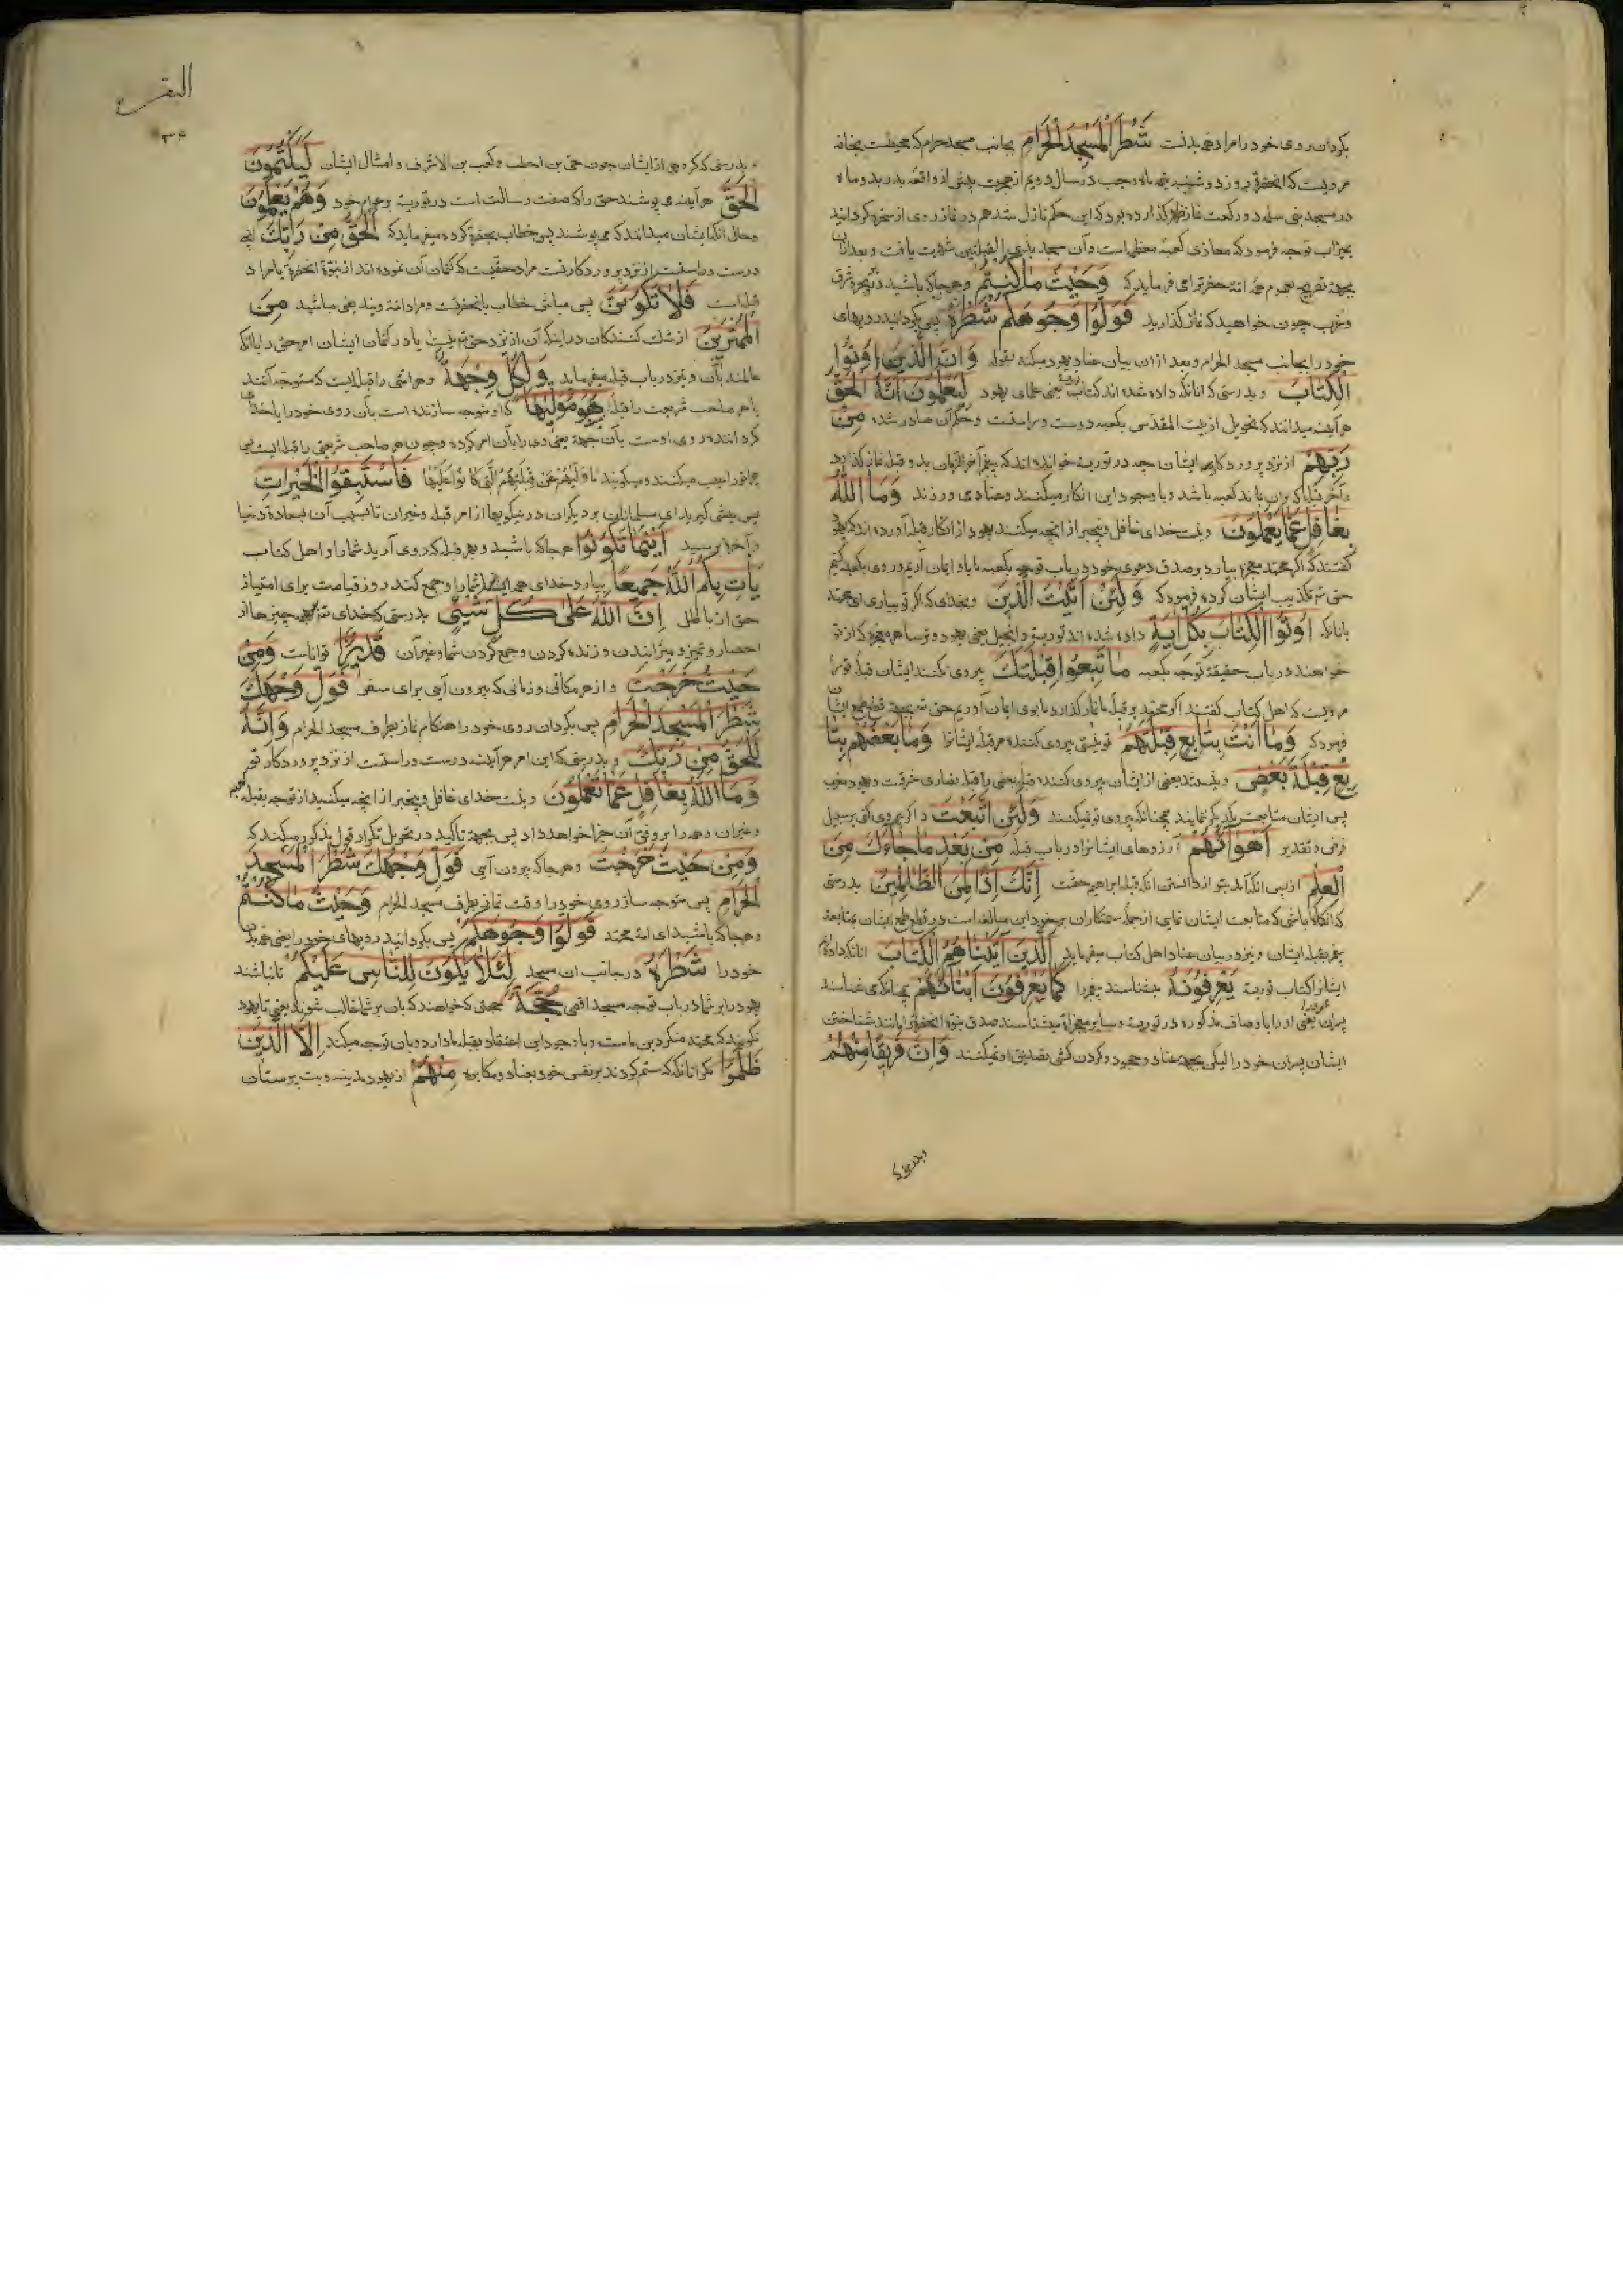 بکردان روی خود را مراد همه بدنت شَطْرَ الْمَسْجِدِ الْحَرَامِ بجانب مسجد حرام که محیطست بخانه
مرویست که آنحضرة روز دوشنبه نیمه ماه رجب در سال دویم از هجرت پیش از واقعه بدر بدو ماه
در مسجد بنی سلمه دو رکعت نماز ظهر کذارده بود که این حکم نازل شد هم در نماز روی از صخره کردانید
بمیزاب توجه فرمود که محاذی کعبه معظمه است و آن مسجد بذی القبلتین شهرت یافت و بعد از آن
بجهة تصریح عموم همه امة حضرترا می فرماید که وَحَيْثُ مَا كُنْتُمْ و هرجا که باشید در بحر و بر شرق
و غرب چون خواهید که نماز کذارید فَوَلُّوا وُجُوهَكُمْ شَطْرَهُ پس بکردانید رویهای
خود را بجانب مسجد الحرام و بعد از ان بیان عناد یهود میکند بقوله وَإِنَّ الَّذِينَ أُوتُوا
الْكِتَابَ و بدرستی که آنانکه داده شده اند کتاب یعنی علمای یهود لَيَعْلَمُونَ أَنَّهُ الْحَقُّ
هر آینه میدانند که تحویل از بیت المقدس بکعبه درست و راستست و حکم آن صادر شده مِنْ
رَبِّهِمْ از نزد پروردکار ایشان چه در توریة خوانده اند که پیغمبر آخر الزمان بدو قبله نماز کذارد
و آخر قبله که بران بماند کعبه باشد و با وجود این انکار میکنند و عناد می ورزند وَمَا اللَّهُ
بِغَافِلٍ عَمَّا يَعْمَلُونَ و نیست خدای غافل و بیخبر از انچه میکنند یهود از انکار قبله آورده اند که یهود
کفتند که اگر محمد معجزه بیارد بر صدق دعوی خود در باب توجه بکعبه ما باو ایمان آریم و روی بکعبه کنیم
حق تع تکذیب ایشان کرده فرمود که وَلَئِنْ أَتَيْتَ الَّذِينَ و بخدای که اکر تو بیاری ای محمد
بانانکه أُوتُوا الْكِتَابَ بِكُلِّ آيَةٍ داده شده اند توریة و انجیل یعنی یهود و ترسا هر معجزه که از تو
خواهند در باب حقیقة توجه بکعبه مَا تَبِعُوا قِبْلَتَكَ پیروی نکنند ایشان قبله تورا
مرویست که اهل کتاب کفتند اکر محمد بر قبله ما نماز کذارد ما بوی ایمان آوریم حق سبحانه قطع طمع ایشان
فرمود که وَمَا أَنْتَ بِتَابِعٍ قِبْلَتَهُمْ تو نیستی پیروی کننده مر قبله ایشانرا وَمَا بَعْضُهُمْ بِتَا
بِعٍ قِبْلَةَ بَعْضٍ و نیستند بعضی از ایشان پیروی کننده قبله بعضی را قبله نصاری شرقست و یهود مغرب
پس ایشان متابعت یکدیکر نمایند چنانکه پیروی تو نمیکنند وَلَئِنِ اتَّبَعْتَ و اکر پیروی کنی بر سبیل
فرض و تقدیر أَهْوَاءَهُمْ آرزوهای ایشانرا در باب قبله مِنْ بَعْدِ مَا جَاءَكَ مِنَ
الْعِلْمِ از پس انکه آمد بتو از دانستن انکه قبله ابراهیم حقست إِنَّكَ إِذًا لَمِنَ الظَّالِمِينَ بدرستی
که انکاه باشی که متابعت ایشان نمایی از جمله ستمکاران بر خود این مبالغه است در قطع طمع ایشان بمتابعة
پیغمبر بقبله ایشان و نیز در بیان عناد اهل کتاب میفرماید الَّذِينَ آتَيْنَاهُمُ الْكِتَابَ انانکه داده ایم
ایشانرا کتاب توریة يَعْرِفُونَهُ میشناسند پیغمبر را كَمَا يَعْرِفُونَ أَبْنَاءَهُمْ همچنانکه می شناسند
پسران خود را یعنی او را باوصاف مذکوره در توریة و سایر معجزاة میشناسند صدق نبوة آنحضرترا مانند شناختن
ایشان پسران خود را لیکن بجهة عناد و جحود و کردن کشی تصدیق او نمیکنند وَإِنَّ فَرِيقًا مِنْهُمْ
و بدرستی که
البقره
۳۵
و بدرستی که کروهی از ایشان چون حی بن اخطب و کعب بن الاشرف و امثال ایشان لَيَكْتُمُونَ
الْحَقَّ هر آینه می پوشند حق را که صفت رسالت است در توریة بر عوام خود وَهُمْ يَعْلَمُونَ
و حال انکه ایشان میدانند که می پوشند پس خطاب بحضرة کرده میفرماید که الْحَقُّ مِنْ رَبِّكَ انچه
درست و راستست از نزد پروردکار تست مراد حقیست که کتمان آن نموده اند از نبوة انحضرة یا مراد
قبله است فَلَا تَكُونَنَّ پس مباش خطاب بانحضرتست و مراد امة ویند یعنی مباشید مِنَ
الْمُمْتَرِينَ از شک کنندکان در اینکه آن از نزد حق تع نیست یا در کتمان ایشان امر حق را با انکه
عالمند بآن و نیز در باب قبله میفرماید وَلِكُلٍّ وِجْهَةٌ و هر امتی را قبله ایست که متوجه آنند
یا هر صاحب شریعت را قبله هُوَ مُوَلِّيهَا که او متوجه سازنده است بآن روی خود را یا خدای
کرداننده روی اوست بآن جهة یعنی وی را بآن امر کرده و چون هر صاحب شریعتی را قبله ایست پس
چرا تو را عیب میکنند و میکویند مَا وَلَّاهُمْ عَنْ قِبْلَتِهِمُ الَّتِي كَانُوا عَلَيْهَا فَاسْتَبِقُوا الْخَيْرَاتِ
پس پیشی کیرید ای مسلمانان بر دیکران در نیکوییها از امر قبله و غیران تا بسبب آن بسعادة دنیا
و آخرة برسید أَيْنَمَا تَكُونُوا هر جا که باشید و بهر قبله که روی آرید شما و اهل کتاب
يَأْتِ بِكُمُ اللَّهُ جَمِيعًا بیارد خدای همه شما را و جمع کند روز قیامت برای امتیاز
حق از باطل إِنَّ اللَّهَ عَلَى كُلِّ شَيْءٍ بدرستی که خدای تع بر همه چیزها از
احضار و تمیز و میرانیدن و زنده کردن و جمع کردن شما و غیر آن قَدِيرٌ توانا است وَمِنْ
حَيْثُ خَرَجْتَ و از هر مکانی و زمانی که بیرون آیی برای سفر فَوَلِّ وَجْهَكَ
شَطْرَ الْمَسْجِدِ الْحَرَامِ پس بکردان روی خود را هنکام نماز بطرف مسجد الحرام وَإِنَّهُ
لَلْحَقُّ مِنْ رَبِّكَ و بدرستی که این امر هر آینه درست و راستست از نزد پروردکار تو
وَمَا اللَّهُ بِغَافِلٍ عَمَّا تَعْمَلُونَ و نیست خدای غافل و بیخبر از انچه میکنید از توجه بقبله
و غیران و همه را بر وفق آن جزا خواهد داد پس بجهة تاکید در تحویل تکرار قول مذکور میکند که
وَمِنْ حَيْثُ خَرَجْتَ و هر جا که بیرون آیی فَوَلِّ وَجْهَكَ شَطْرَ الْمَسْجِدِ
الْحَرَامِ پس متوجه ساز روی خود را وقت نماز بطرف مسجد الحرام وَحَيْثُ مَا كُنْتُمْ
و هرجا که باشید ای امة محمد فَوَلُّوا وُجُوهَكُمْ پس بکردانید رویهای خود را یعنی همه بدن
خود را شَطْرَهُ در جانب ان مسجد لِئَلَّا يَكُونَ لِلنَّاسِ عَلَيْكُمْ تا نباشد
یهود را بر شما در باب توجه مسجد اقصی حُجَّةٌ حجتی که خواهند که بان بر شما غالب شوند یعنی تا یهود
نکویند که محمد منکر دین ماست و با وجود این اعتقاد بقبله ما دارد و بان توجه میکند إِلَّا الَّذِينَ
ظَلَمُوا مکر آنانکه ستم کردند بر نفس خود بعناد و مکابره مِنْهُمْ از یهود مدینه و بت پرستان